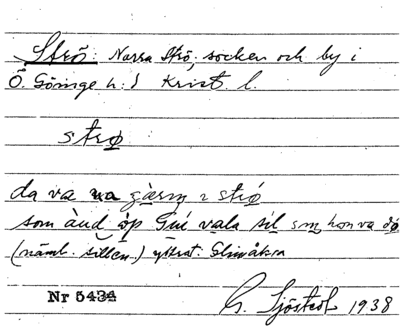 Strö: Norra Strö; socken och by i
Ö. Göinge h: i Krist. l.
strø
da va na gärn i strø
som ànd òp vala sil som hon va dø
(näml. sillen.) yttrat. Glimåkra
Nr 5434
G. Sjöstedt 1938